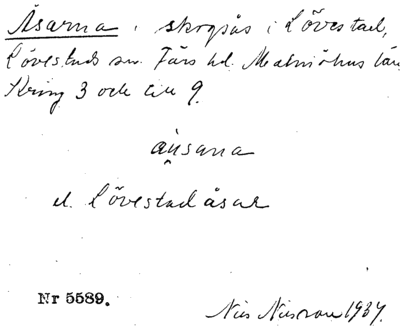 Åsarna, skogsås i Lövestad,
Lövestads sn. Färs hd. Malmöhus län
Kring 3 och 9.
åusana
el. Lövestadåsar
Nr 5589.
Nils Nilsson 1934.